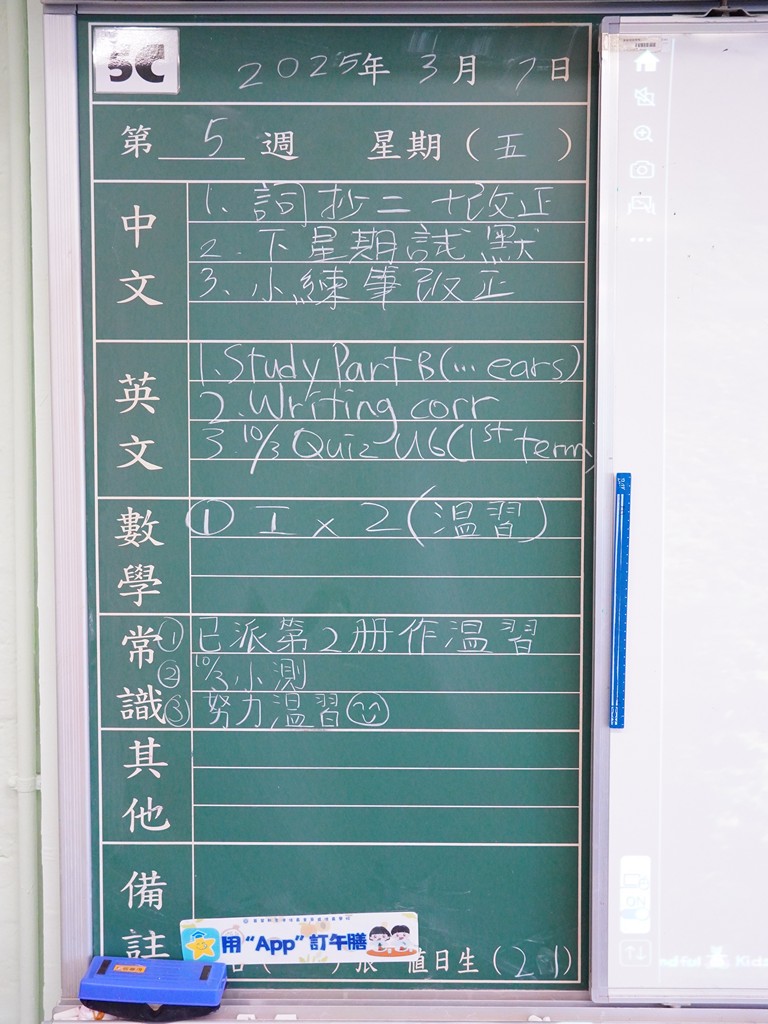 5C
2025年 3月 7日
第 5 週 星期（五）
中文
1. 詞抄二 + 改正
2. 下星期試默
3. 小練筆改正
英文
1. Study Part B (... ears)
2. Writing corr
3. 10/3 Quiz U6 (1st term)
數學
① 工 x 2 (温習)
常識
① 已派第2册作温習
② 10/3 小測
③ 努力温習
其他
備註
用 “App” 訂午膳
值日生 (21)